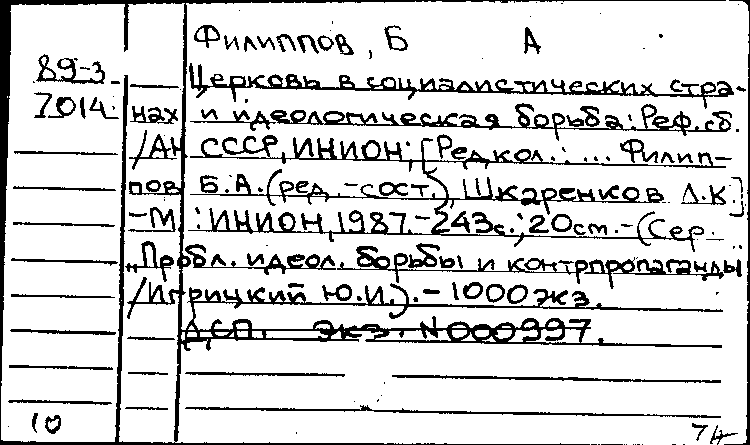 Филиппов, Б А
89-3 Церковь в социалистических стра-
7014 нах и идеологическая борьба: Реф. сб.
/АН СССР, ИНИОН; [Редкол.: ... Филип-
пов Б.А. (ред.-сост.), Шкаренков Л.К.]
-М.: ИНИОН, 1987.-243с.; 20см.-(Сер.
„Пробл. идеол. борьбы и контрпропаганды
/Игрицкий Ю.И.).-1000экз.
ДСП. Экз. N000997.
10 74